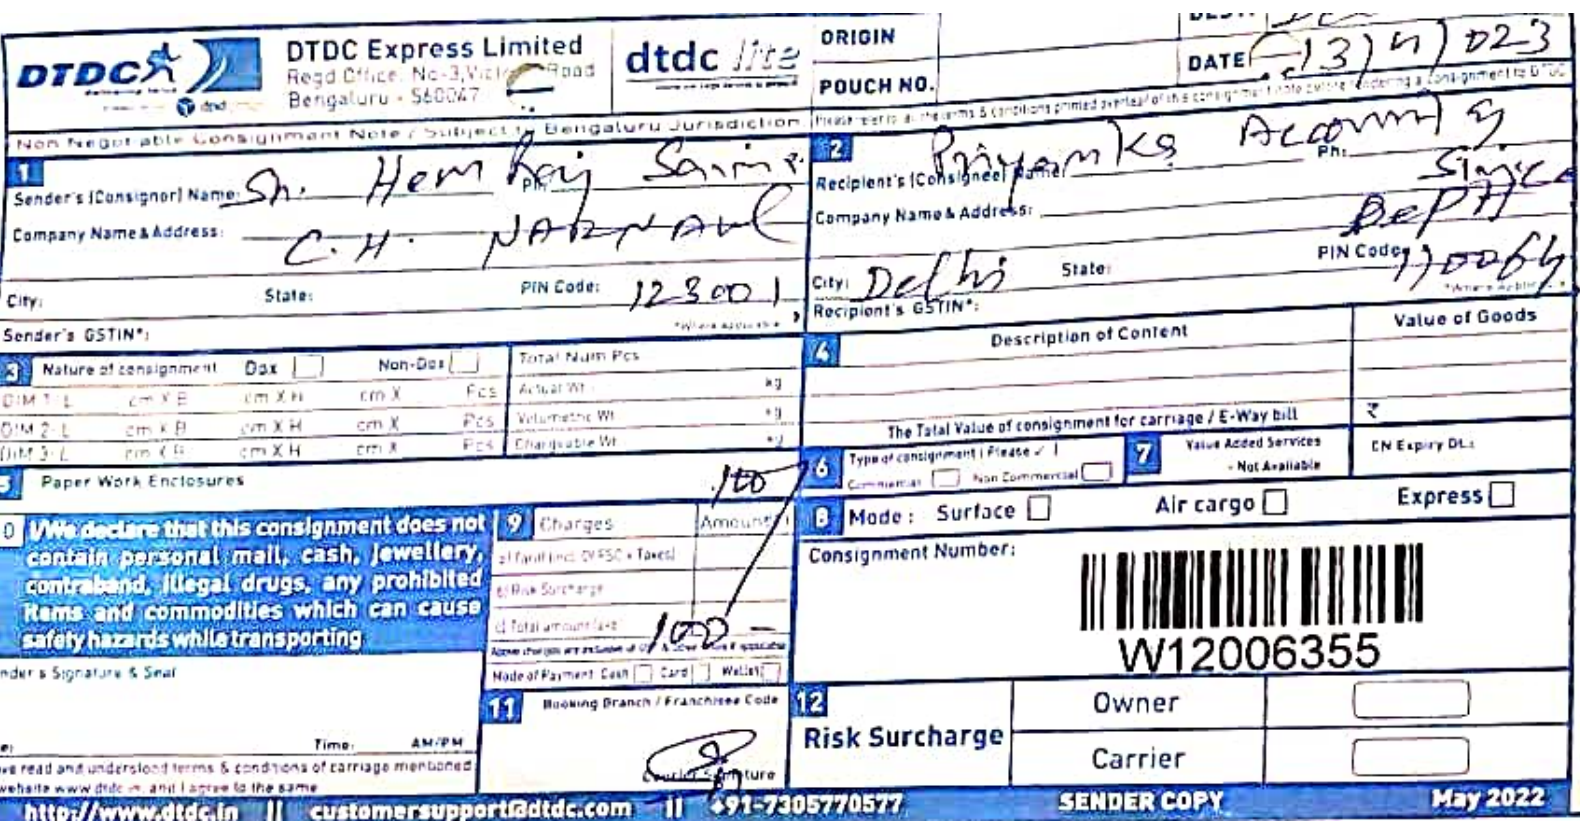 DTDC
DTDC Express Limited
Regd Office: No-3, Road
Bengaluru - 560047
dtdc lite
ORIGIN
POUCH NO.
DATE 13/
Non Negotiable Consignment Note / Subject to Bengaluru Jurisdiction
Please refer to all the terms & conditions printed overleaf of this consignment note before tendering a consignment to DTDC
1
Sender's (Consignor) Name: Sh. Hem Raj Saini
Ph:
Company Name & Address:
C.H. NARNAUL
City: State: PIN Code: 123001
Sender's GSTIN*:
*Where Applicable
2
Recipient's (Consignee) Name: Priyanka Accounts
Ph:
Company Name & Address:
Deptt
City: Delhi State: PIN Code: 110064
Recipient's GSTIN*:
*Where Applicable
3 Nature of consignment Dox Non-Dox
DIM 1: L cm X B cm X H cm X Pcs
DIM 2: L cm X B cm X H cm X Pcs
DIM 3: L cm X B cm X H cm X Pcs
Total Num Pcs
Actual Wt. kg
Volumetric Wt. kg
Chargeable Wt. kg
4 Description of Content Value of Goods
The Total Value of consignment for carriage / E-Way bill ₹
5 Paper Work Enclosures
100
6 Type of consignment (Please ✓)
Commercial Non Commercial
7 Value Added Services
- Not Available
CN Expiry Dt.:
8 Mode: Surface Air cargo Express
Consignment Number:
W12006355
9 Charges Amount
b) Risk Surcharge
c) Total amount 100 -
Mode of Payment: Cash Card Wallet
0 I/We declare that this consignment does not
contain personal mail, cash, jewellery,
contraband, illegal drugs, any prohibited
items and commodities which can cause
safety hazards while transporting
nder's Signature & Seal
Time: AM/PM
ve read and understood terms & conditions of carriage mentioned
website www.dtdc.in, and I agree to the same
11 Booking Branch / Franchisee Code
Courier Signature
12
Risk Surcharge
Owner
Carrier
http://www.dtdc.in || customersupport@dtdc.com || +91-7305770577 SENDER COPY May 2022